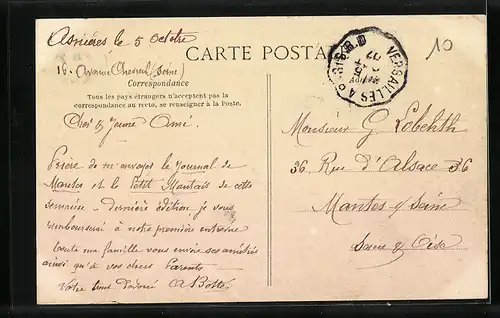 Asnières le 5 Octobre
16. Avenue Chevreul (Seine)
CARTE POSTALE
Correspondance
Tous les pays étrangers n'acceptent pas la
correspondance au recto, se renseigner à la Poste.
VERSAILLES A PARIS
07
10
Cher & Jeune Ami.
Prière de m'envoyer le Journal de
Mantes et le Petit Mantais de cette
semaine - dernière édition je vous
rembourserai à notre première entrevue
toute ma famille vous envoie ses amitiés
ainsi qu'à vos chers Parents -
Votre tout Dévoué
Monsieur G.
36, Rue d'Alsace 36
Mantes s/ Seine
Seine & Oise